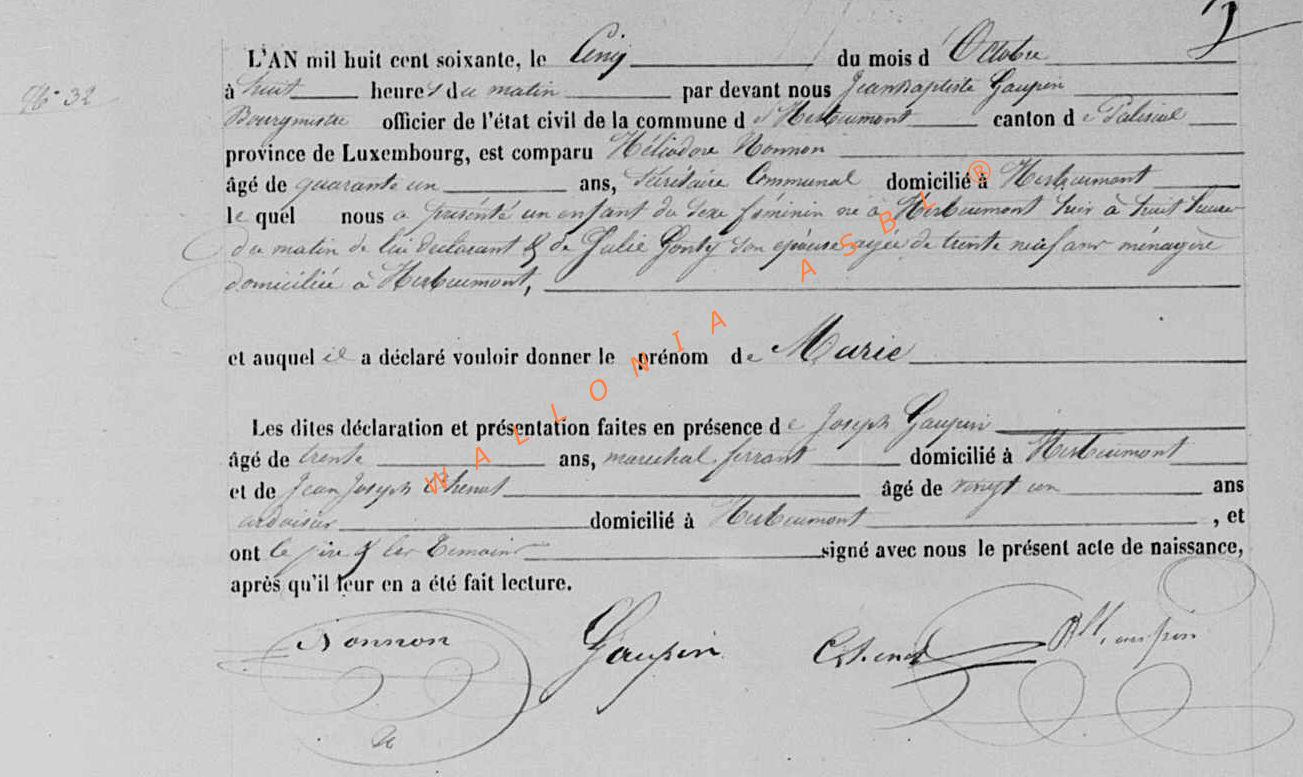 N° 32
L'AN mil huit cent soixante, le Cinq du mois d'Octobre
à huit heures du matin par devant nous Jean Baptiste Gaupin
Bourgmestre officier de l'état civil de la commune d'Herbeumont canton de Paliseul
province de Luxembourg, est comparu Héliodore Nonnon
âgé de quarante un ans, Sécrétaire Communal domicilié à Herbeumont
lequel nous a présenté un enfant du sexe féminin né à Herbeumont hier à huit heures
du matin de lui déclarant & de Julie Gonty son épouse agée de trente neuf ans ménagère
domiciliée à Herbeumont,
et auquel il a déclaré vouloir donner le prénom de Marie
Les dites déclaration et présentation faites en présence de Joseph Gaupin
âgé de trente ans, maréchal ferrant domicilié à Herbeumont
et de Jean Joseph Thenot âgé de vingt un ans
ardoisier domicilié à Herbeumont, et
ont le père & les témoins signé avec nous le présent acte de naissance,
après qu'il leur en a été fait lecture.
Nonnon Gaupin
WALLONIA ASBL ®